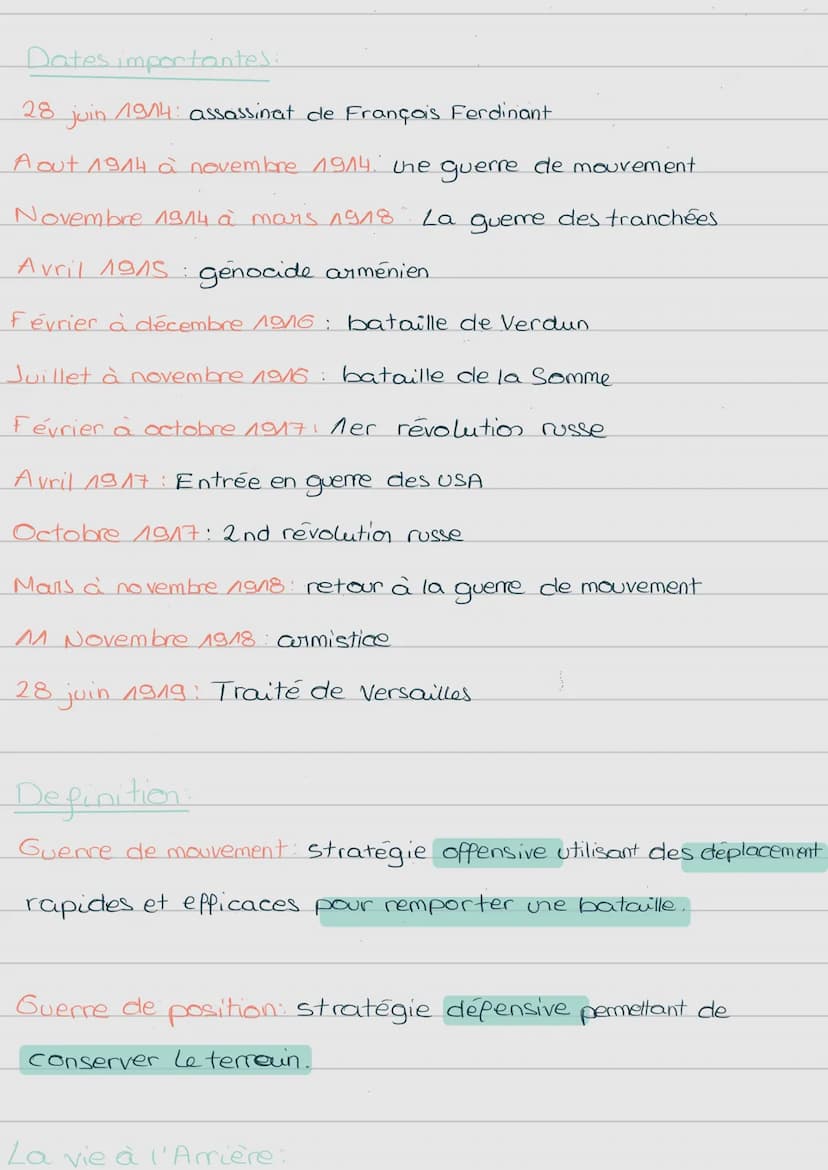 Dates importantes:
28 juin 1914: assassinat de François Ferdinant
Aout 1914 à novembre 1914: une guerre de mouvement
Novembre 1914 à mars 1918: La guerre des tranchées
Avril 1915 : génocide arménien
Février à décembre 1916 : bataille de Verdun
Juillet à novembre 1916 : bataille de la Somme
Février à octobre 1917: 1er révolution russe
Avril 1917 : Entrée en guerre des USA
Octobre 1917: 2nd révolution russe
Mars à novembre 1918: retour à la guerre de mouvement
11 Novembre 1918 : armistice
28 juin 1919: Traité de Versailles
Definition:
Guerre de mouvement: stratégie offensive utilisant des déplacement
rapides et efficaces pour remporter une bataille.
Guerre de position: stratégie défensive permettant de
conserver le terrain.
La vie à l'Arrière: